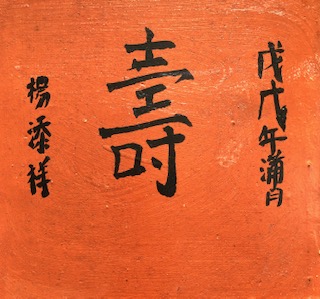 戊戌年蒲月
壽
楊添祥